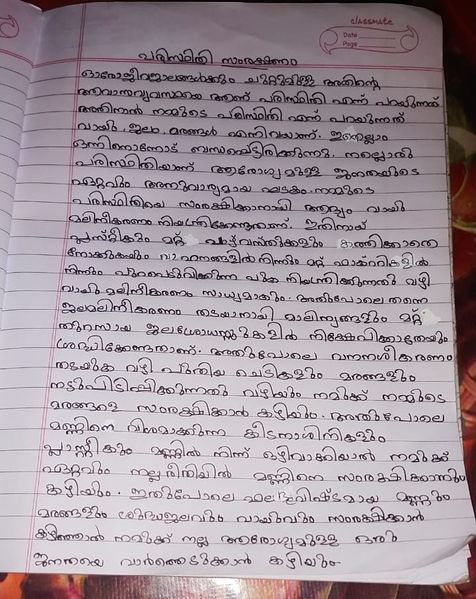 classmate
Date
Page
പരിസ്ഥിതി സംരക്ഷണം
ഓരോജീവജാലങ്ങൾക്കും ചുറ്റുമുള്ള അതിന്റെ
ആവാസവ്യവസ്ഥയെ ആണ് പരിസ്ഥിതി എന്ന് പറയുന്നത്
അതിനാൽ നമ്മുടെ പരിസ്ഥിതി എന്ന് പറയുന്നത്
വായു, ജലം, മരങ്ങൾ എന്നിവയാണ്. ഇതെല്ലാം
ഒന്നിനൊന്നോട് ബന്ധപ്പെട്ടിരിക്കുന്നു. നല്ലൊരു
പരിസ്ഥിതിയാണ് ആരോഗ്യമുള്ള ജനതയുടെ
ഏറ്റവും അനുവാര്യമായ ഘടകം. നമ്മുടെ
പരിസ്ഥിതിയെ സംരക്ഷിക്കാനായി ആദ്യം വായു
മലിനീകരണം നിയന്ത്രിക്കേണ്ടതാണ്. ഇതിനായ്
പ്ലാസ്റ്റികും മറ്റ് പാഴ്വസ്തുക്കളും കത്തിക്കാതെ
നോക്കുകയും വാഹനങ്ങളിൽ നിന്നും മറ്റ് ഫാക്ടറികളിൽ
നിന്നും പുറപെടുവിക്കുന്ന പുക നിയന്ത്രിക്കുന്നതു വഴി
വായു മലിനീകരണം സാധ്യമാകും. അതുപോലെ തന്നെ
ജലമലിനീകരണം തടയാനായി മാലിന്യങ്ങളും മറ്റ്
തുറസായ ജലശ്രോധസ്സുകളിൽ നിക്ഷേപിക്കാതെയും
ശ്രദ്ധിക്കേണ്ടതാണ്. അതുപോലെ വനനശീകരണം
തടയുക വഴി പുതിയ ചെടികളും മരങ്ങളും
നട്ടുപിടിപ്പിക്കുന്നതു വഴിയും നമുക്ക് നമ്മുടെ
മരങ്ങളെ സംരക്ഷിക്കാൻ കഴിയും. അതുപോലെ
മണ്ണിനെ വിശമാക്കുന്ന കീടനാശിനികളും
പ്ലാസ്റ്റീകും മണ്ണിൽ നിന്ന് ഒഴിവാക്കിയാൽ നമുക്ക്
ഏറ്റവും നല്ലരീതിയിൽ മണ്ണിനെ സംരക്ഷിക്കാനും
കഴിയും. ഇതുപോലെ ഫലഭൂവിഷ്ടമായ മണ്ണും
മരങ്ങളും ശുദ്ധജലവും വായുവും സംരക്ഷിക്കാൻ
കഴിഞ്ഞാൽ നമുക്ക് നല്ല ആരോഗ്യമുള്ള ഒരു
ജനതയെ വാർത്തെടുക്കാൻ കഴിയും.